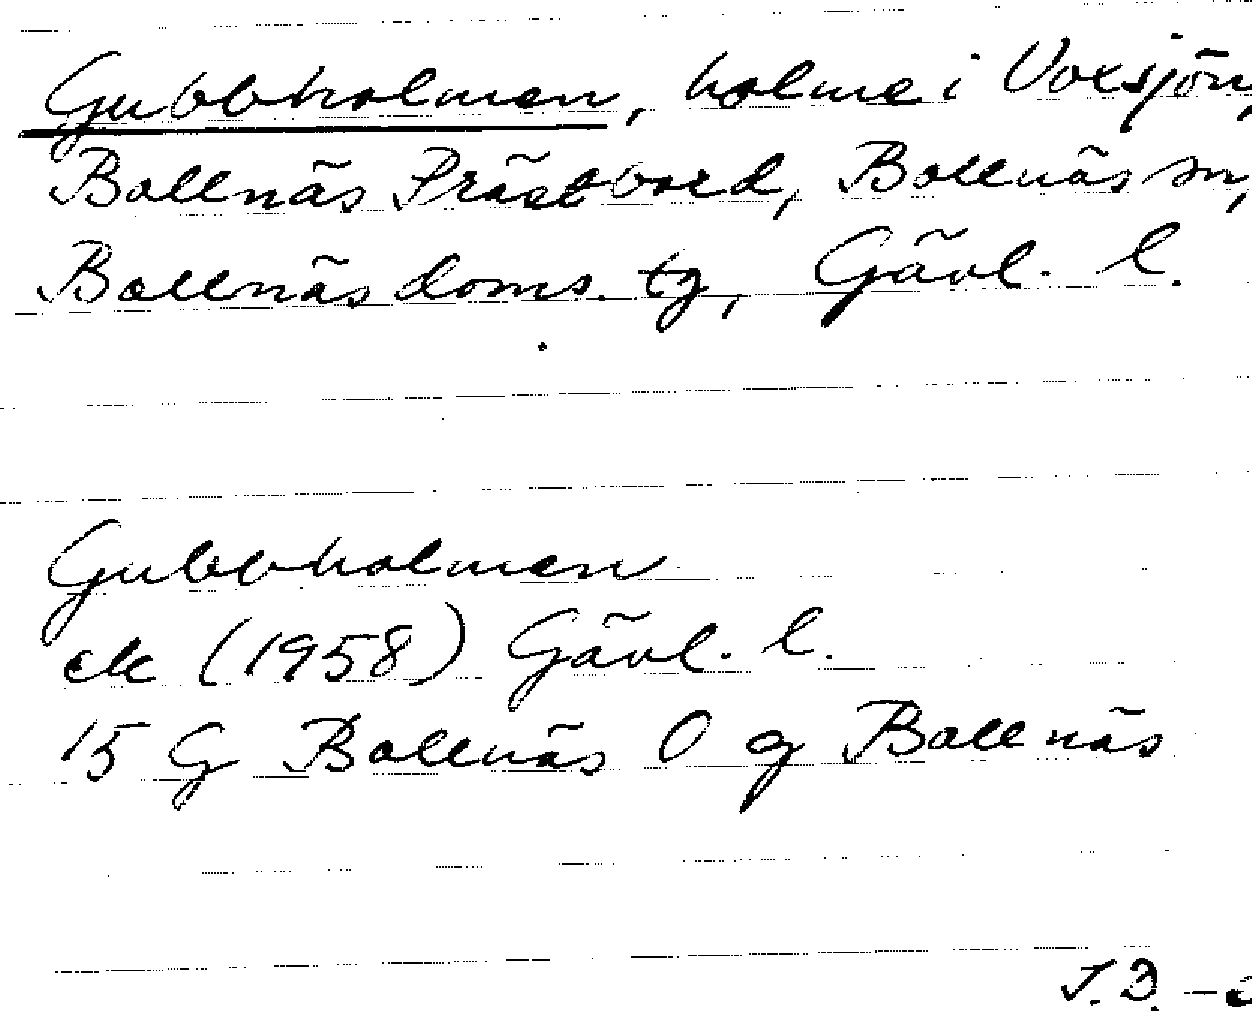 Gubbholmen, holme i Voxsjön,
Bollnäs Prästbord, Bollnäs sn,
Bollnäs doms. tg, Gävl. l.
Gubbholmen
ek (1958) Gävl. l.
15 G Bollnäs O g Bollnäs
J.D. –